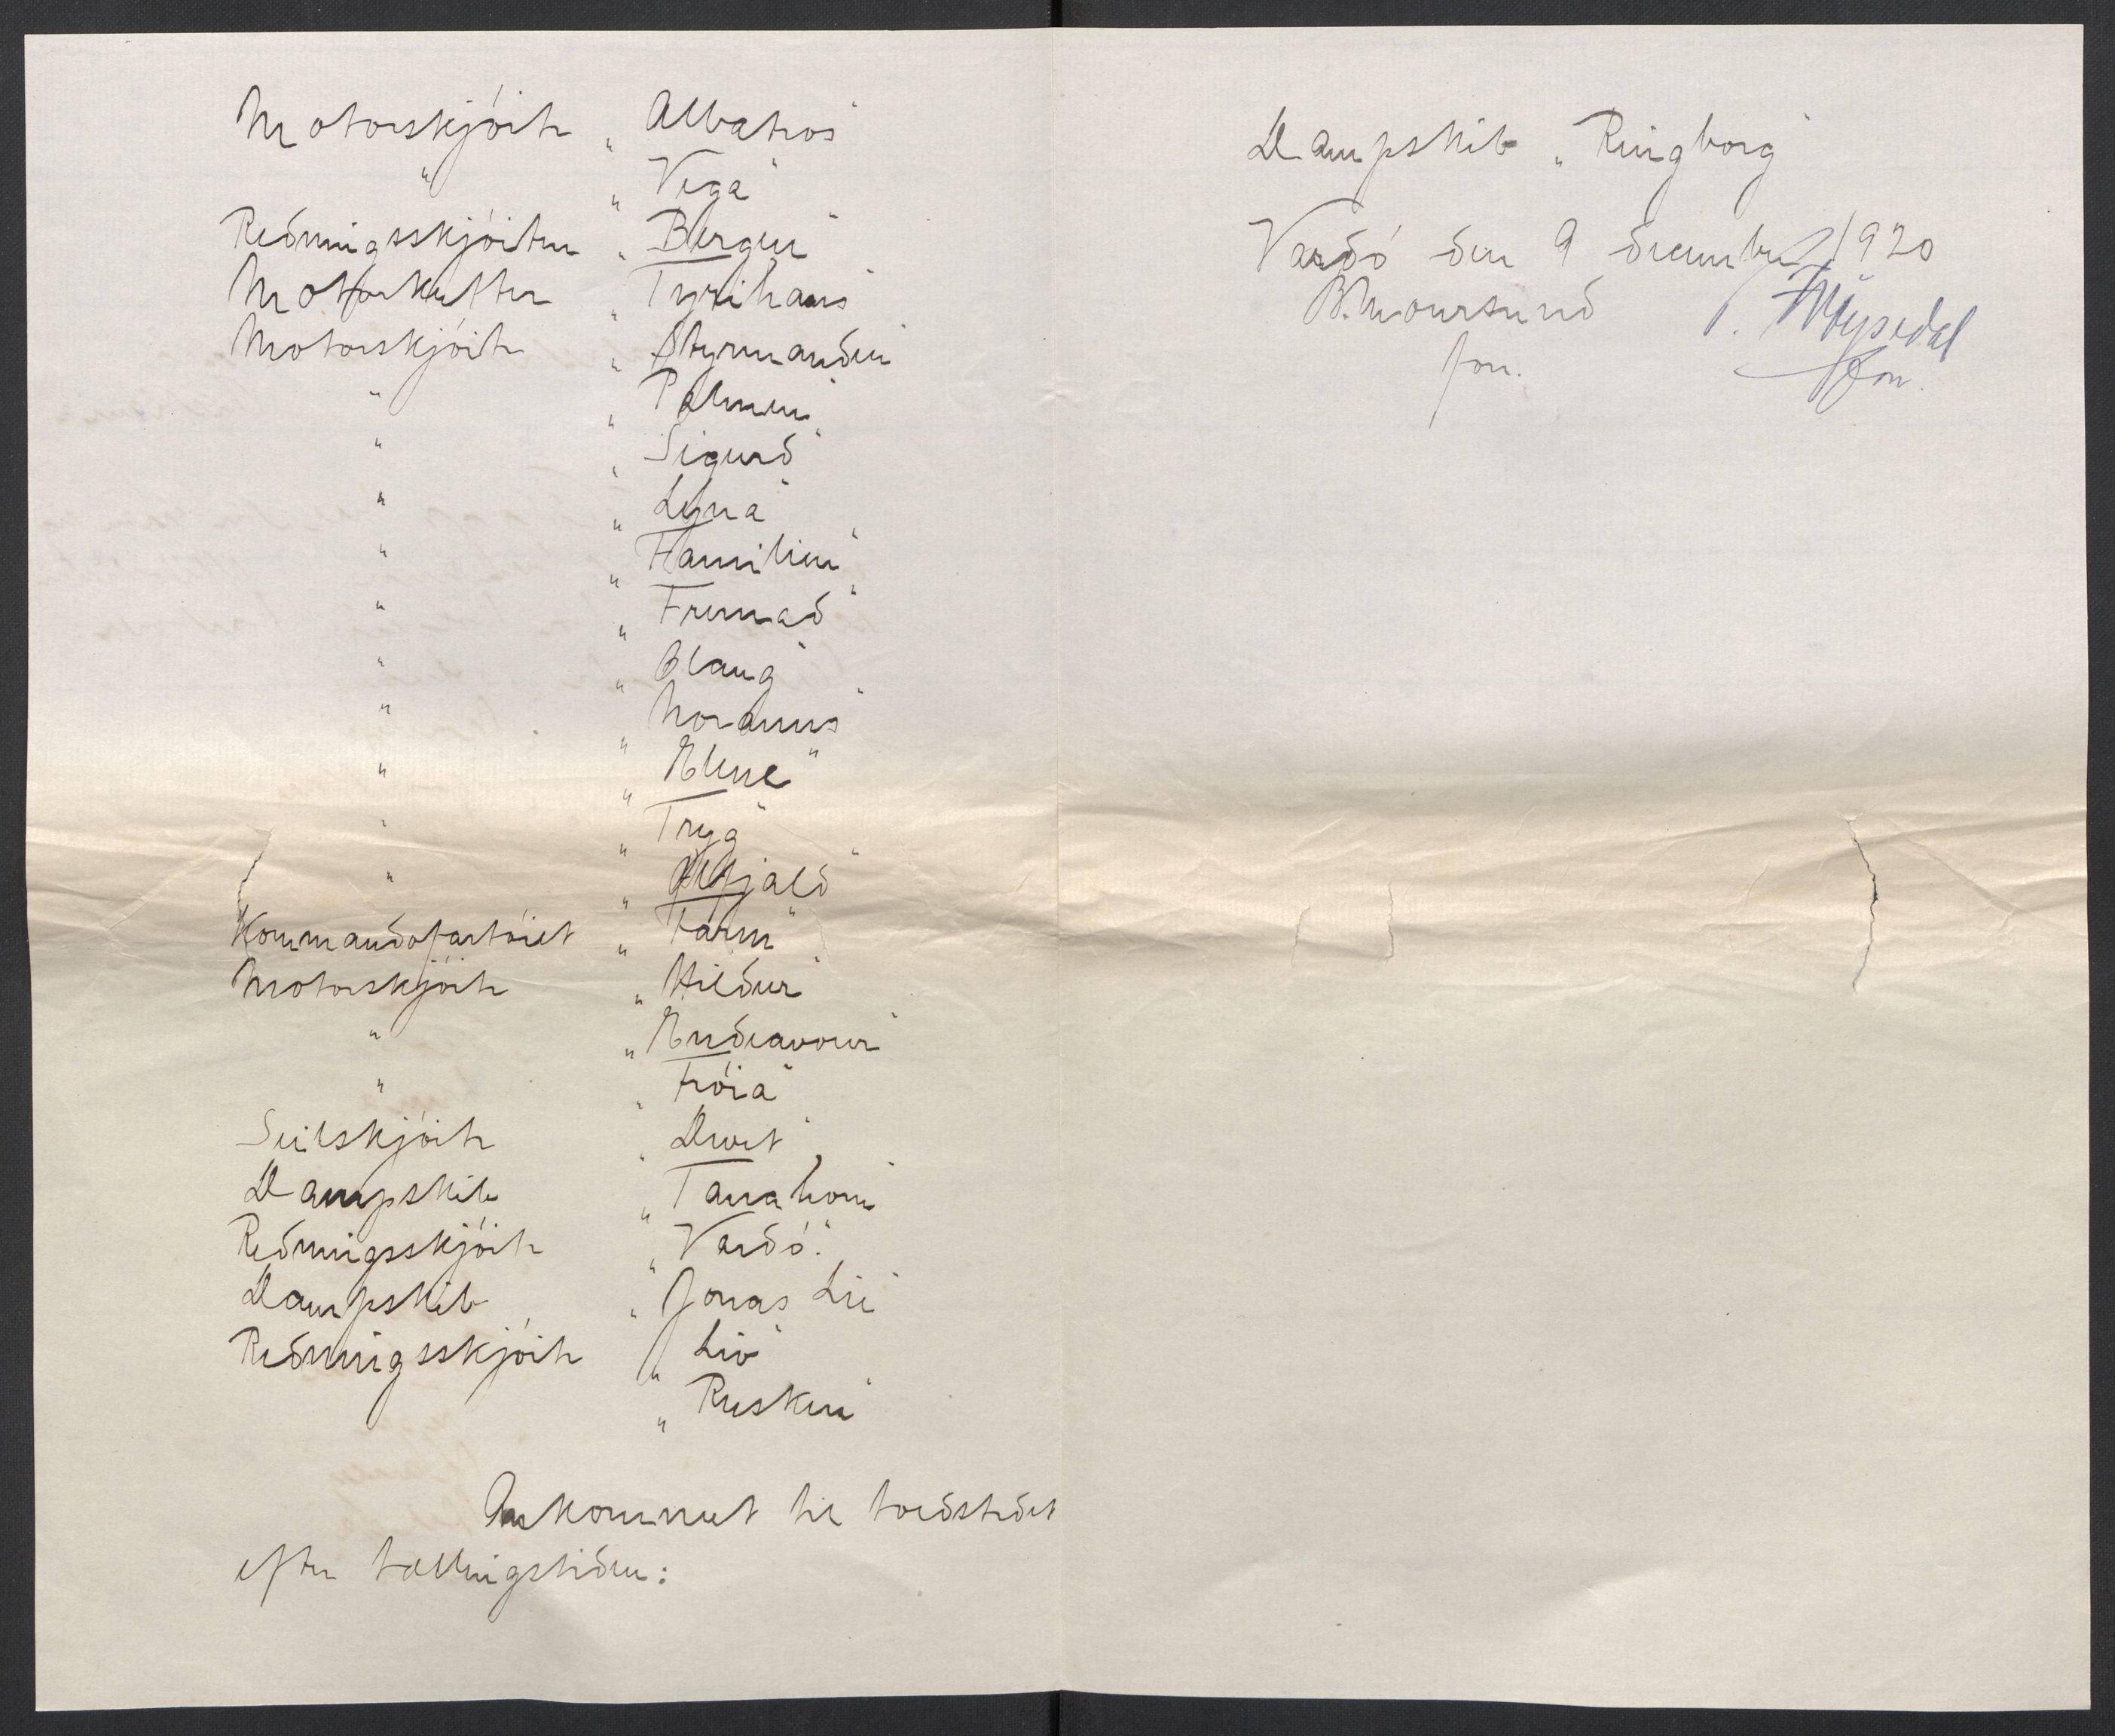 Motorskjöite „Albatros"
" „Vega"
Redningsskjöiten „Bergen"
Motorkutter „Tyrihans"
Motorskjöite „Styrmanden"
" „Palmen"
" „Sigurd"
" „Lyna"
" „Familien"
" „Fremad"
" „Olaug"
" „Noranus"
" „Elene"
" „Tryg"
" „Ægjald"
Kommandofartöiet „Farm"
Motorskjöite „Hildur"
" „Endeavour"
" „Fröia"
Seilskjöite „Duet"
Dampskib „Tanahorn"
Redningsskjöite „Vardö"
Dampskib „Jonas Lie"
Redningsskjöite „Liv"
„Rusken"
Ankommet til toldstedet
efter tællingstiden:
Dampskib „Ringborg"
Vardö den 9 december 1920
B. Moursund
fon.